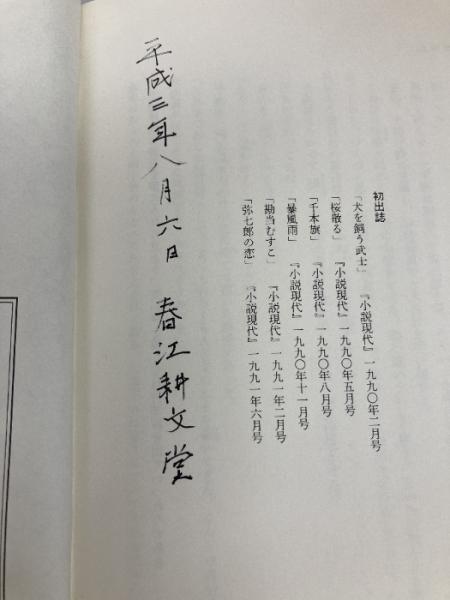 初出誌
「犬を飼う武士」　『小説現代』一九九〇年二月号
「桜散る」　『小説現代』一九九〇年五月号
「千本旗」　『小説現代』一九九〇年八月号
「暴風雨」　『小説現代』一九九〇年十一月号
「勘当むすこ」　『小説現代』一九九一年二月号
「弥七郎の恋」　『小説現代』一九九一年六月号
平成三年八月六日　春江耕文堂